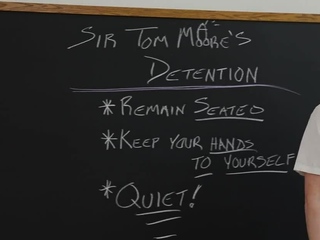 SIR TOM MOORE'S
DETENTION
*REMAIN SEATED
*KEEP YOUR HANDS
TO YOURSELF
*QUIET!